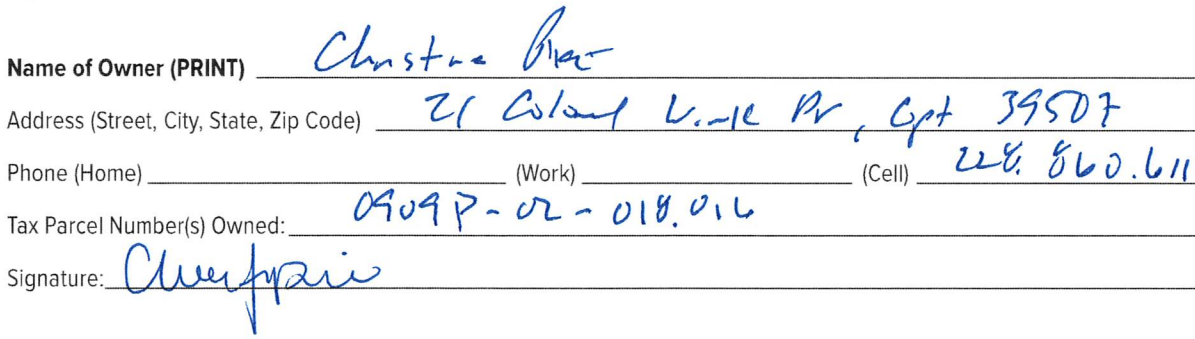 Name of Owner (PRINT) Christine
Address (Street, City, State, Zip Code) 21 Dr, Gpt 39507
Phone (Home) (Work) (Cell) 228. 860.611
Tax Parcel Number(s) Owned: 0909P-02-018.016
Signature: